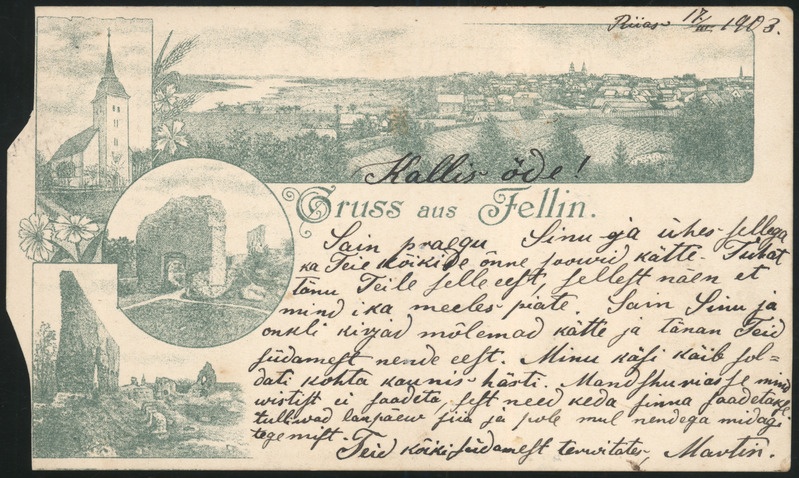 Riias 17/III 1903.
Kallis õde!
Gruss aus Fellin.
Sain praegu Sinu ja ühes sellega
ka Teie kõikide õnne soowid kätte. Tuhat
tänu Teile selle eest, sellest näen et
mind ika meeles piate. Sain Sinu ja
onkli kirjad mõlemad kätte ja tänan Teid
südamest nende eest. Minu käsi käib sol=
dati kohta kaunis hästi. Mandshuriasse mind
wistist ei saadeta sest need keda sinna saadetakse
tulliwad laupäew siia ja pole mul nendega midagi
tegemist. Teid kõiki südamest terwitates, Martin.